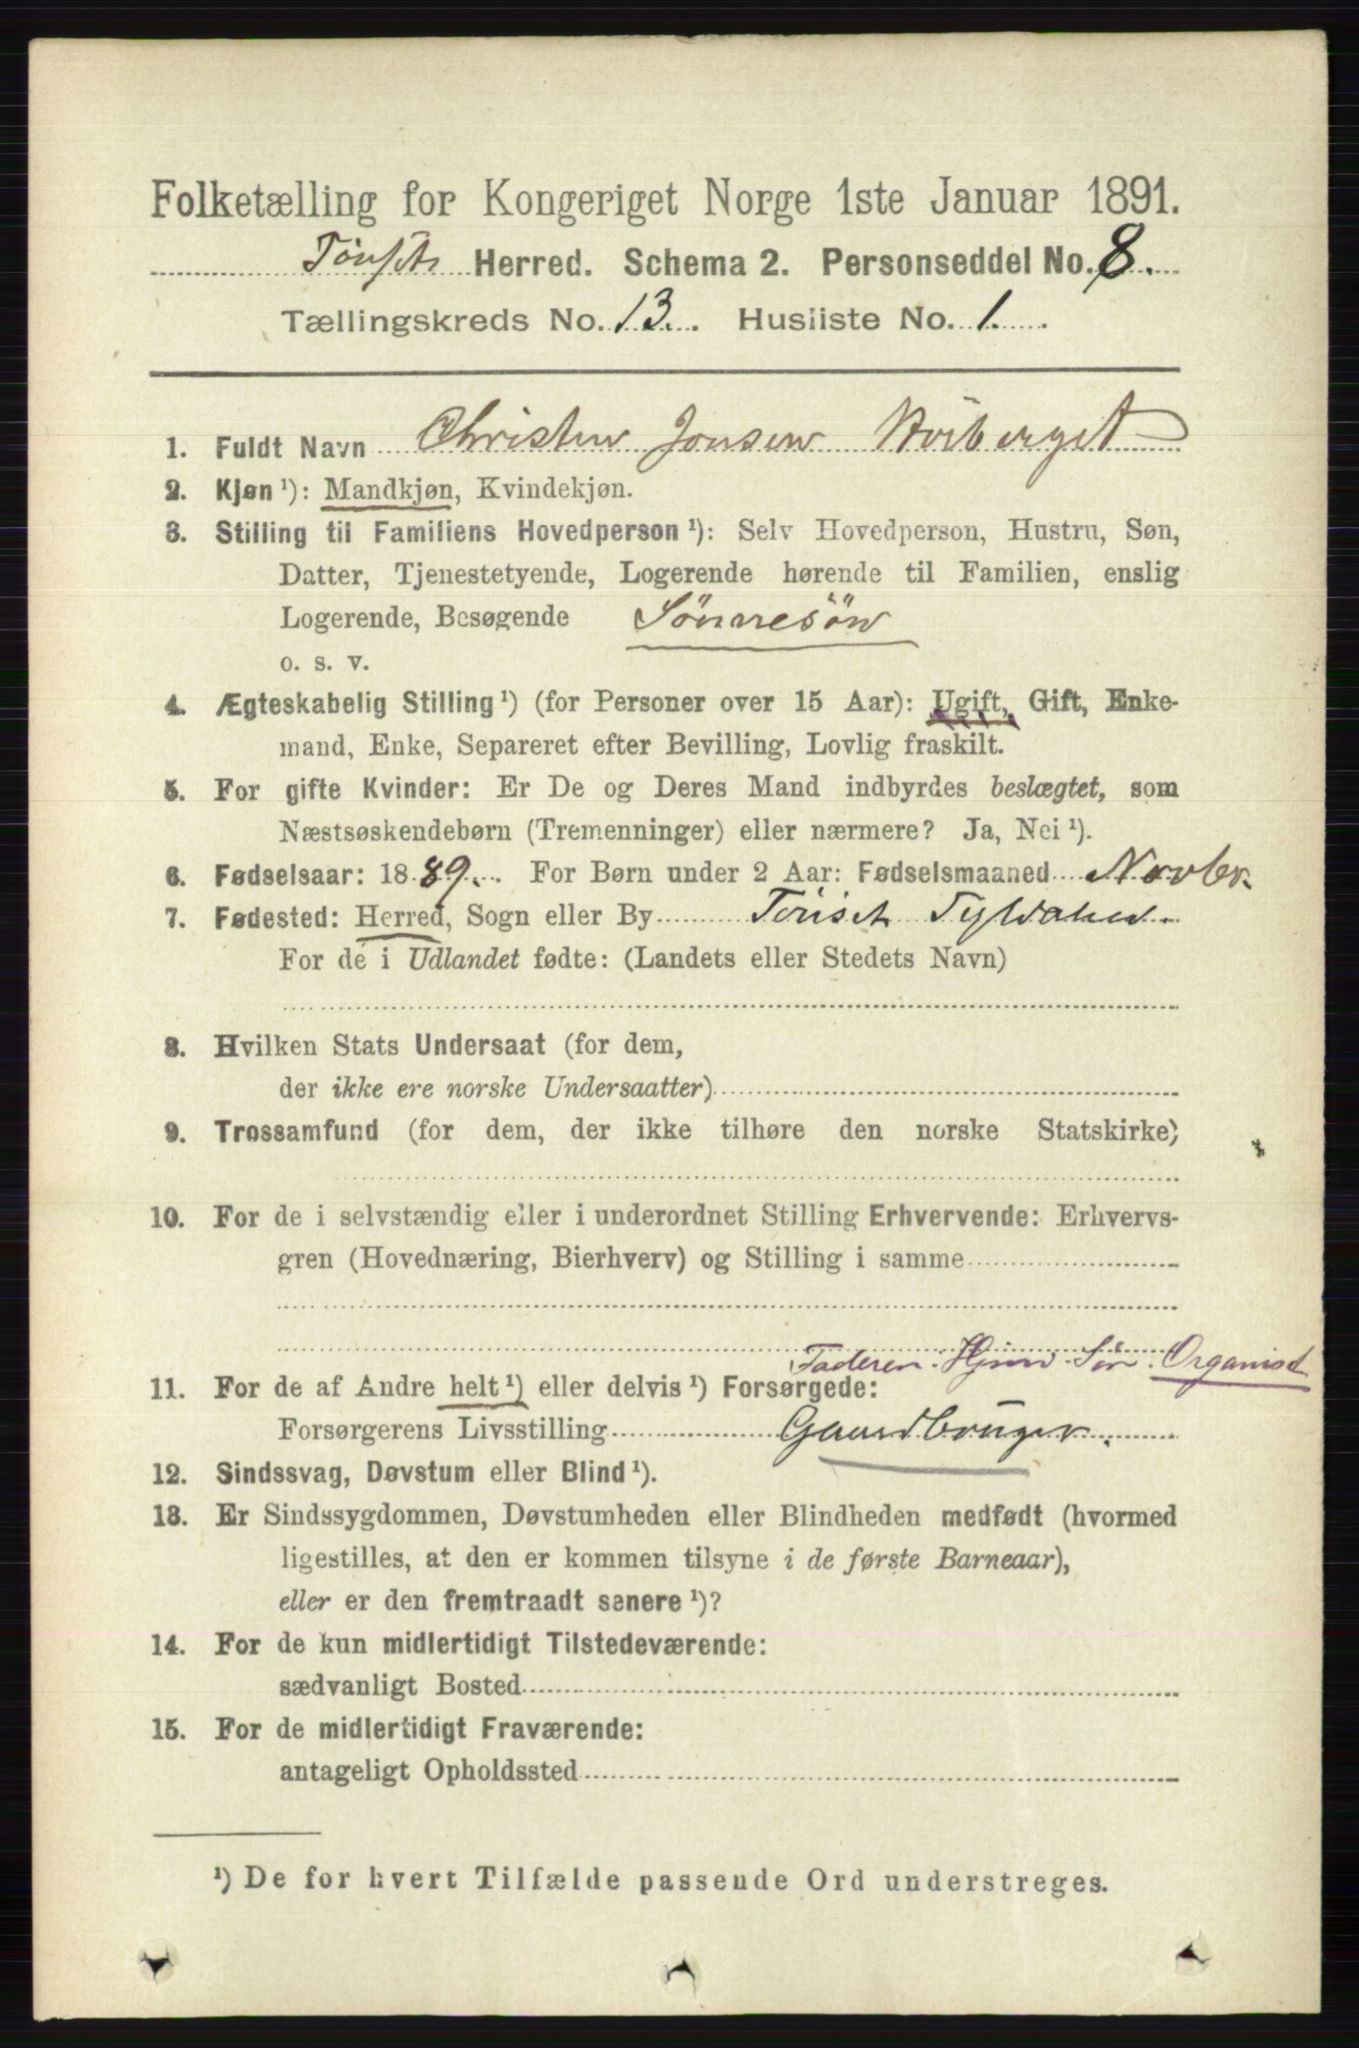 Folketælling for Kongeriget Norge 1ste Januar 1891.
Tønset Herred. Schema 2. Personseddel No. 8.
Tællingskreds No. 13. Husliste No. 1.
1. Fuldt Navn Christen Jonsen
2. Kjøn ¹): Mandkjøn, Kvindekjøn.
3. Stilling til Familiens Hovedperson ¹): Selv Hovedperson, Hustru, Søn,
Datter, Tjenestetyende, Logerende hørende til Familien, enslig
Logerende, Besøgende Sønnesön
o. s. v.
4. Ægteskabelig Stilling ¹) (for Personer over 15 Aar): Ugift, Gift, Enke-
mand, Enke, Separeret efter Bevilling, Lovlig fraskilt.
5. For gifte Kvinder: Er De og Deres Mand indbyrdes beslægtet, som
Næstsøskendebørn (Tremenninger) eller nærmere? Ja, Nei ¹).
6. Fødselsaar: 1889. For Børn under 2 Aar: Fødselsmaaned Novbr.
7. Fødested: Herred, Sogn eller By Tönset Tyldalen
For de i Udlandet fødte: (Landets eller Stedets Navn)
8. Hvilken Stats Undersaat (for dem,
der ikke ere norske Undersaatter)
9. Trossamfund (for dem, der ikke tilhøre den norske Statskirke)
10. For de i selvstændig eller i underordnet Stilling Erhvervende: Erhvervs-
gren (Hovednæring, Bierhverv) og Stilling i samme
Faderen Hjem. Søn. Organist
11. For de af Andre helt ¹) eller delvis ¹) Forsørgede:
Forsørgerens Livsstilling Gaardbruger.
12. Sindssvag, Døvstum eller Blind ¹).
13. Er Sindssygdommen, Døvstumheden eller Blindheden medfødt (hvormed
ligestilles, at den er kommen tilsyne i de første Barneaar),
eller er den fremtraadt senere ¹)?
14. For de kun midlertidigt Tilstedeværende:
sædvanligt Bosted
15. For de midlertidigt Fraværende:
antageligt Opholdssted
¹) De for hvert Tilfælde passende Ord understreges.